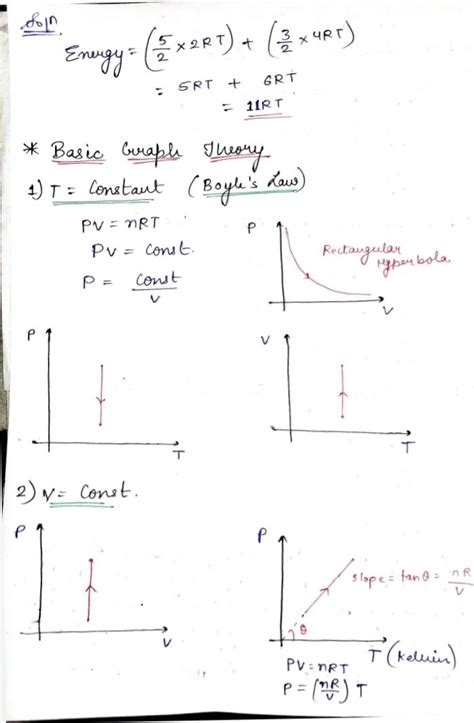 Soln
Energy = (5/2 × 2RT) + (3/2 × 4RT)
= 5RT + 6RT
= 11RT
* Basic Graph Theory
1) T = Constant (Boyle's Law)
PV = nRT
PV = Const.
P = Const/V
P
V
Rectangular
Hyperbola
P
T
V
T
2) V = Const.
P
V
P
θ
slope = tanθ = nR/V
T (Kelvin)
PV = nRT
P = (nR/V) T